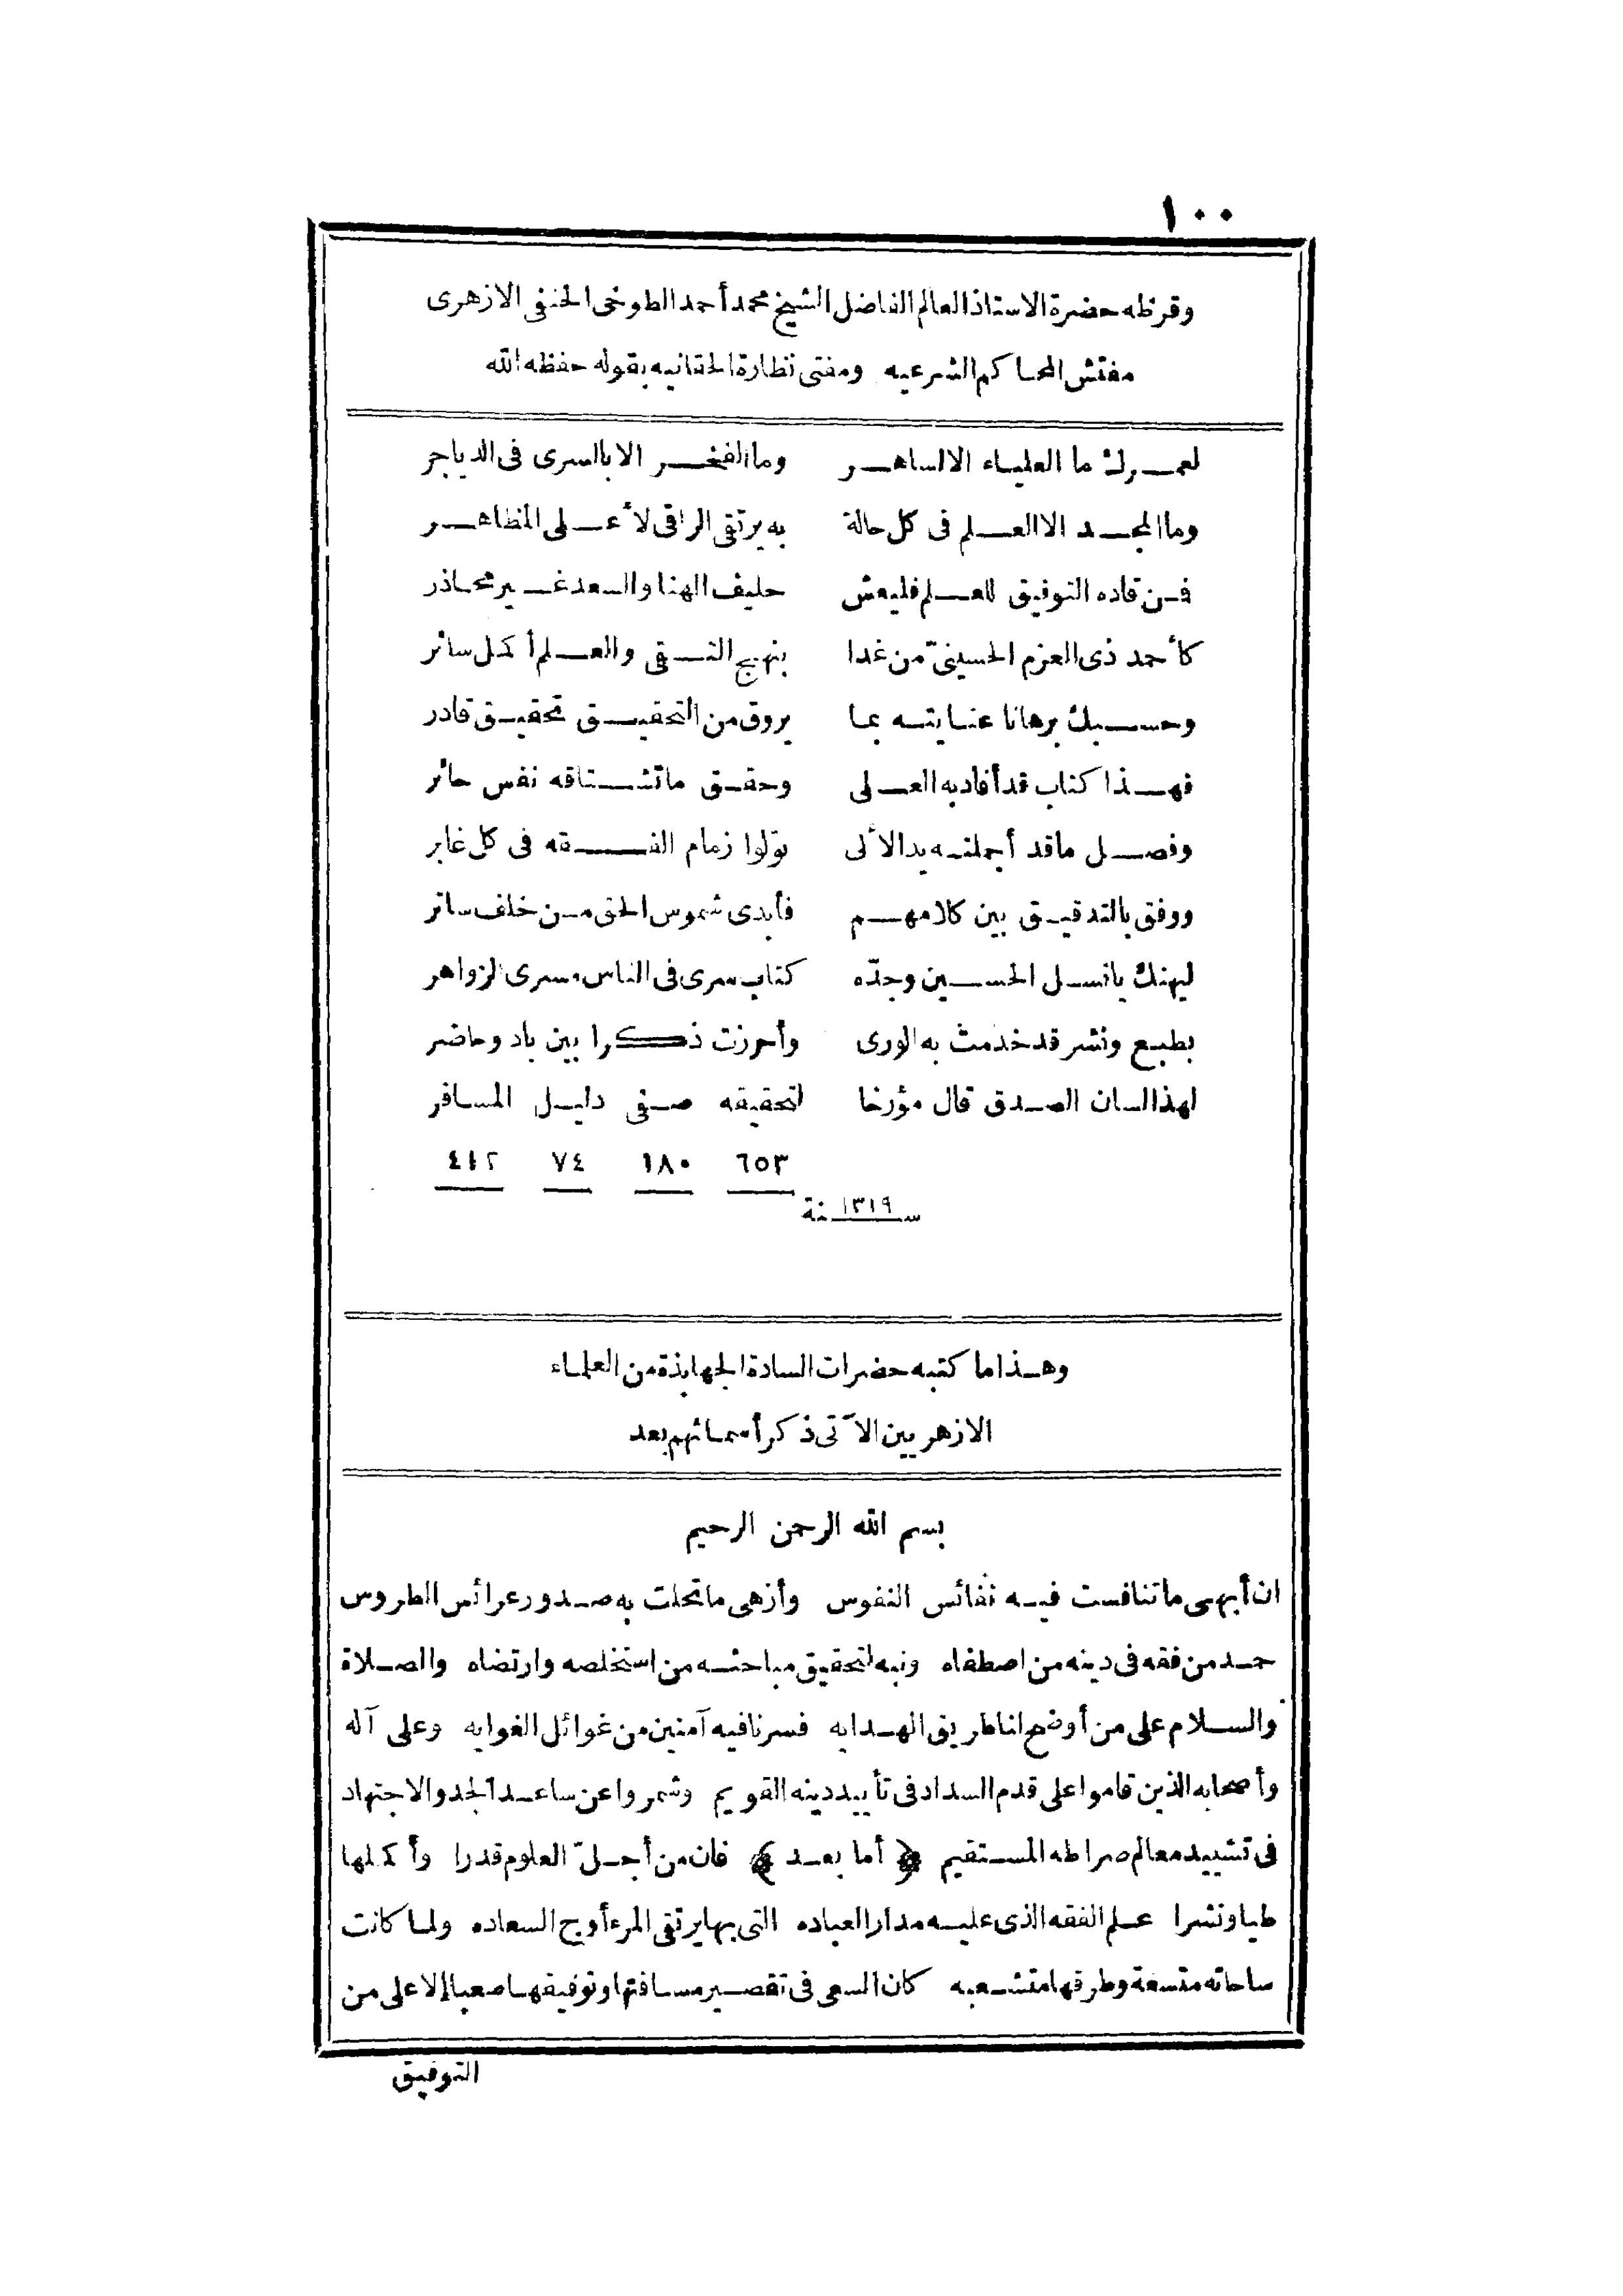 ١٠٠
وقرظه حضرة الاستاذ العالم الفاضل الشيخ محمد أحمد الطوخى الحنفى الازهرى
مفتش المحاكم الشرعيه ومفتى نظارة الحقانيه بقوله حفظه الله
لعمرك ما العلياء الا لساهر وما الفخر الا بالسرى فى الدياجر
وما المجد الا العلم فى كل حالة به يرتقى الراقى لأعلى المظاهر
فمن قاده التوفيق للعلم فليعش حليف الهنا والسعد غير محاذر
كأحمد ذى العزم الحسينىّ من غدا بنهج التقى والعلم أكمل سائر
وحسبك برهانا عنايته بما يروق من التحقيق تحقيق قادر
فهذا كتاب قد أفاد به العلى وحقق ما تشتاقه نفس حائر
وفصل ما قد أجملته يد الألى تولوا زمام الفقه فى كل غابر
ووفق بالتدقيق بين كلامهم فأبدى شموس الحق من خلف ساتر
ليهنك يا نسل الحسين وجدّه كتاب سرى فى الناس مسرى الزواهر
بطبع ونشر قد خدمت به الورى وأحرزت ذكرا بين باد وحاضر
لهذا لسان الصدق قال مؤرخا لتحقيقه صفى دليل المسافر
٦٥٣ ١٨٠ ٧٤ ٤١٢
سنة ١٣١٩
وهذا ما كتبه حضرات السادة الجهابذة من العلماء
الازهريين الآتى ذكر أسمائهم بعد
بسم الله الرحمن الرحيم
ان أبهى ما تنافست فيه نفائس النفوس وأزهى ما تحلت به صدور عرائس الطروس
حمد من فقه فى دينه من اصطفاه ونبه لتحقيق مباحثه من استخلصه وارتضاه والصلاة
والسلام على من أوضح لنا طريق الهدايه فسرنا فيه آمنين من غوائل الغوايه وعلى آله
وأصحابه الذين قاموا على قدم السداد فى تأييد دينه القويم وشمروا عن ساعد الجد والاجتهاد
فى تشييد معالم صراطه المستقيم ﴿أما بعد﴾ فان من أجلّ العلوم قدرا وأكملها
طيا ونشرا علم الفقه الذى عليه مدار العباده التى بها يرتقى المرء أوج السعاده ولما كانت
ساحاته متسعة وطرقها متشعبه كان السعى فى تقصير مسافتها وتوفيقها صعبا إلا على من
التوفيق